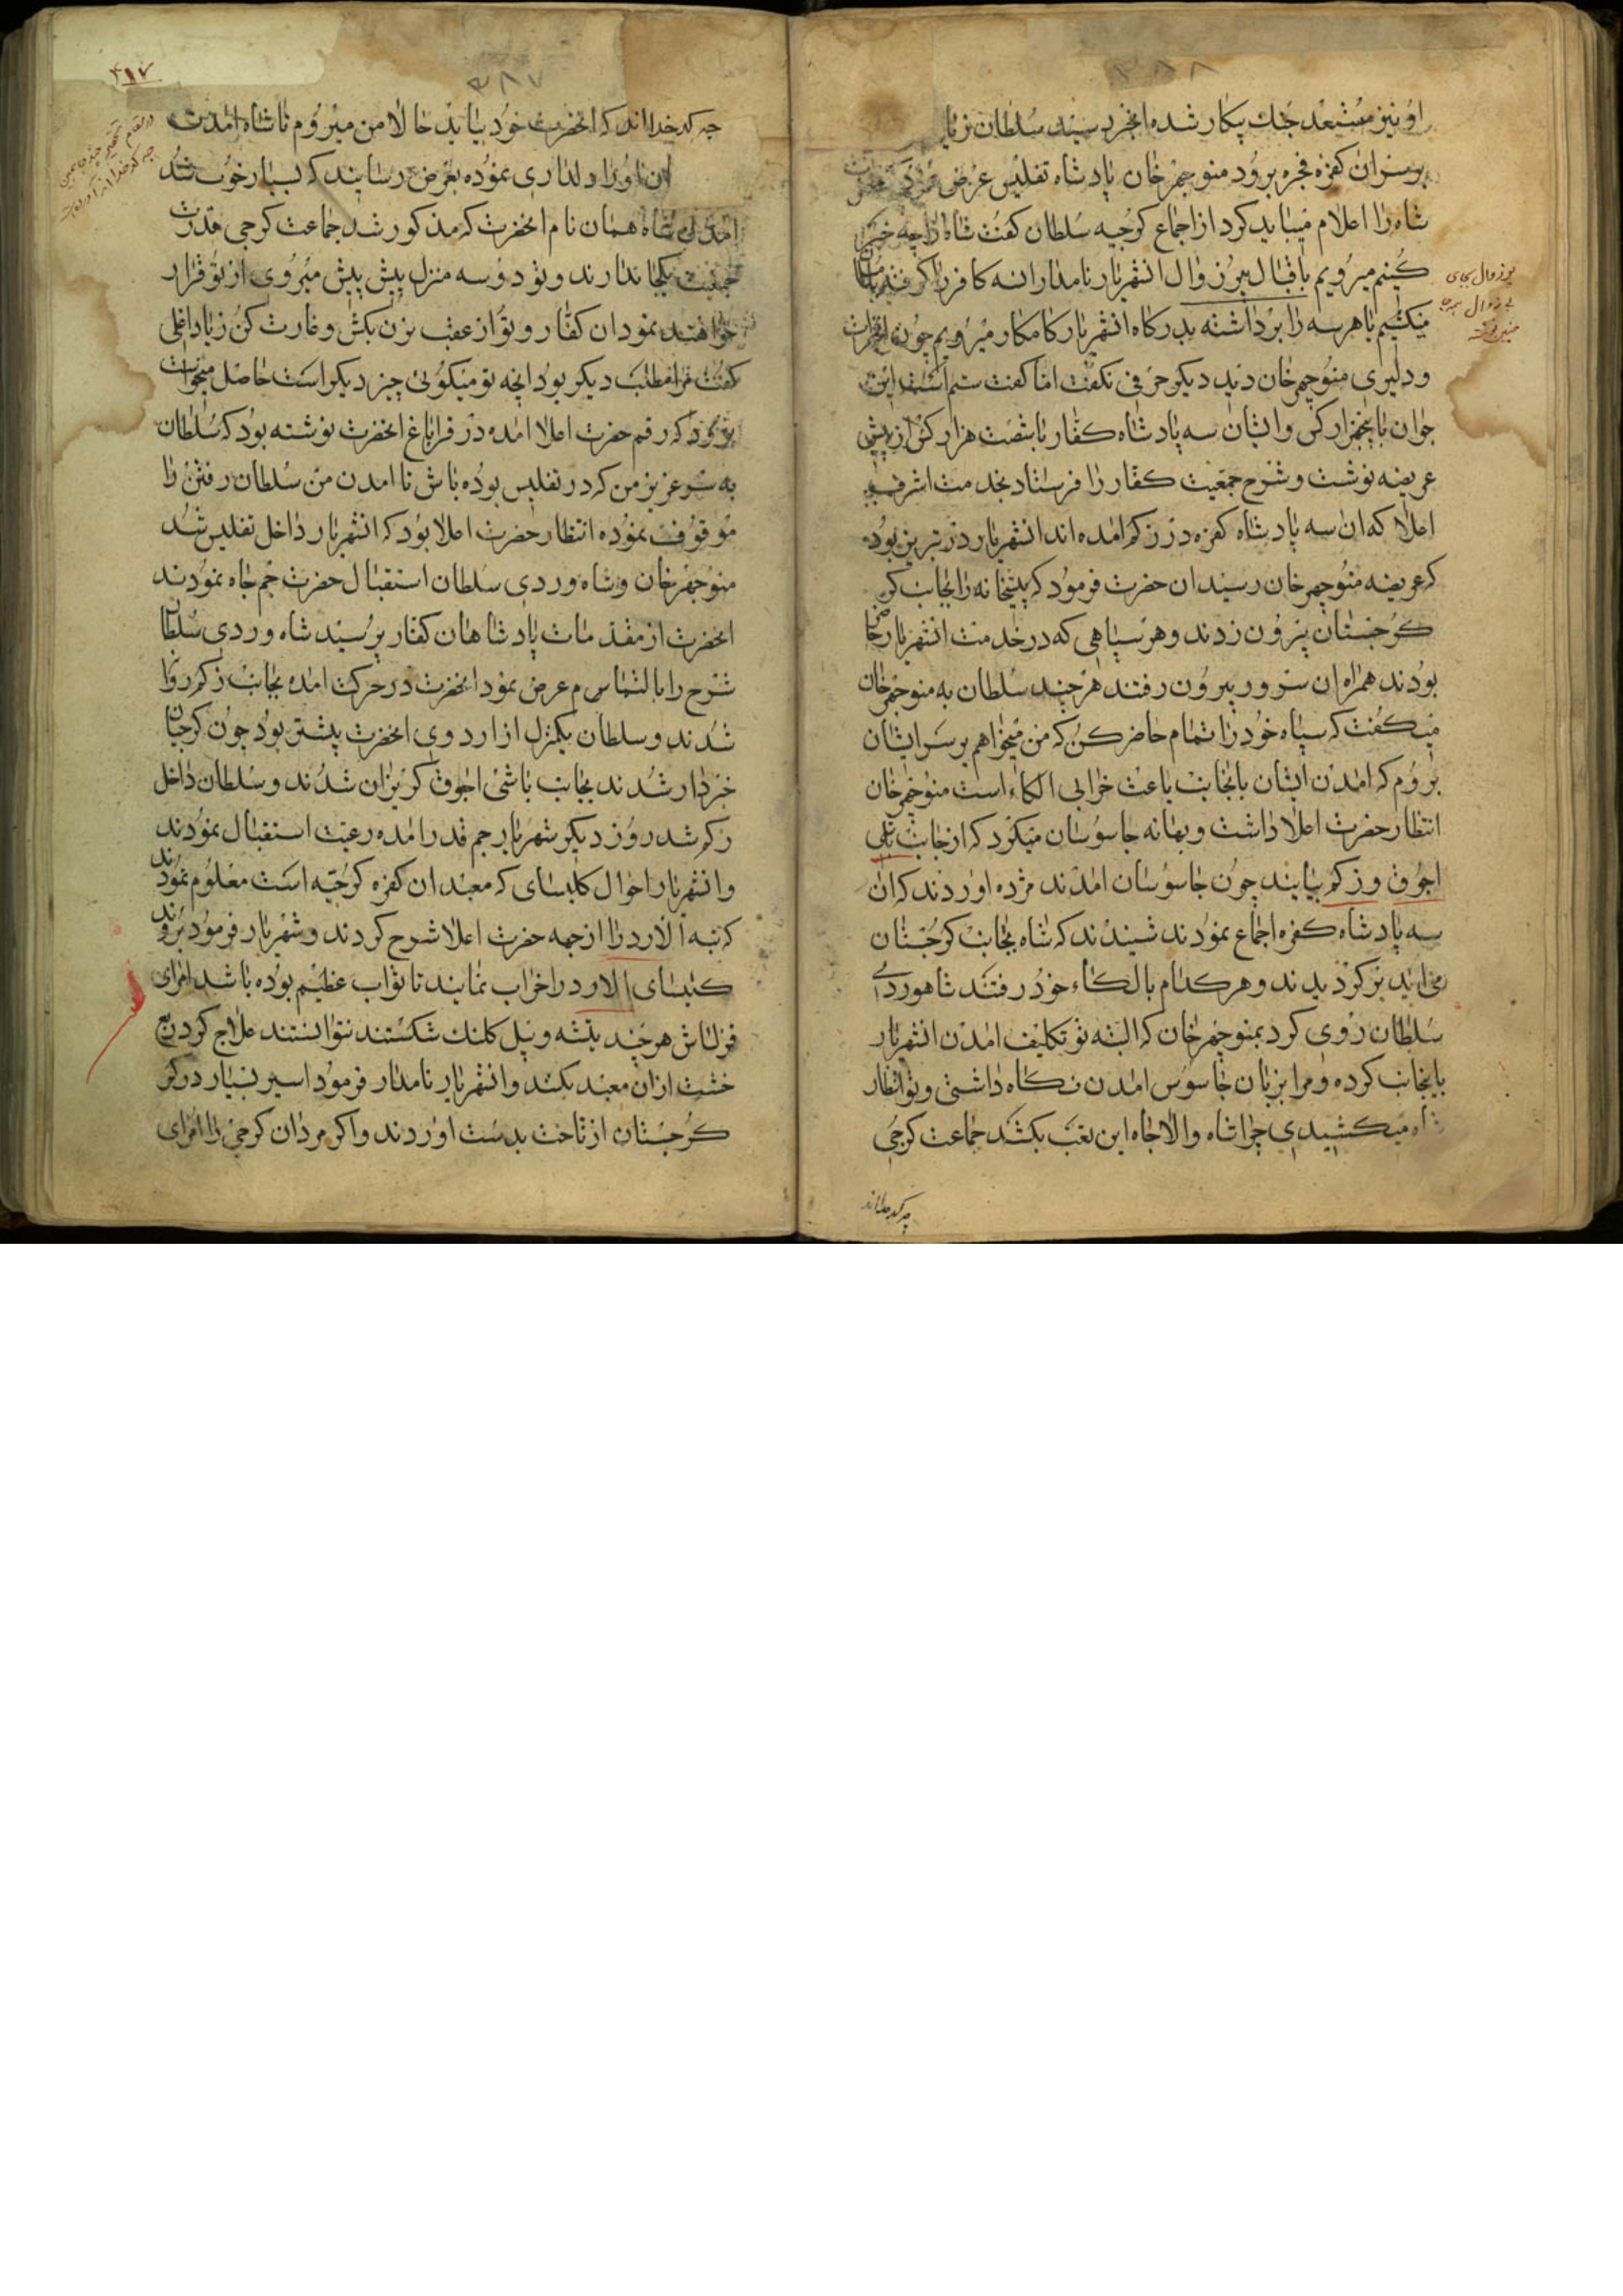 او نیز مستعد جنك پیکار شده انخبر بسیند سلطان زیاد
بر سر ان کفره فجره برود منوجهر خان پادشاه تفلیس عرض
شاه را اعلام میباید کرد از اجماع کرجیه سلطان کفت شاه را چه خبر
کنیم میرویم باقبال لیزوال انشهریار نامدار انسه کافر را کرفته یا
میکشیم یا هر سه را برداشته بدرکاه انشهریار کامکار میرویم چون
ودلیری منوجهر خان دید دیکر حرفی نکفت اما کفت ستم است این
جوان با پنجهزار کس وایشان سه پادشاه کفار با شصت هزار کس از پیش
عریضه نوشت وشرح جمعیت کفار را فرستاد بخدمت اشرف
اعلا که ان سه پادشاه کفره در زکم امده اند انشهریار در تبریز بود
که عریضه منوچهر خان رسید ان حضرت فرمود که پیشخانه را بجانب کر
کرجستان بیرون زدند وهر سپاهی که در خدمت انشهریار حاضر
بودند همراه ان سرور بیرون رفتند هر چند سلطان به منوجهر خان
میکفت که سپاه خود را تمام حاضر کن که من میخواهم بر سر ایشان
بروم که امدن ایشان بانجانب باعث خرابی الکاء است منوجهر خان
انتظار حضرت اعلا داشت وبهانه جاسوسان میکرد که از جانب باشی
اجوق وزکم بیایند چون جاسوسان امدند مژده اوردند که ان
سه پادشاه کفره اجماع نمودند شنیدند که شاه بجانب کرجستان
می اید بر کردیدند وهر کدام بالکاء خود رفتند شاهوردی
سلطان روی کرد بمنوجهر خان که البته تو تکلیف امدن انشهریار
باینجانب کرده ومرا بزبان جاسوس امدن نکاه داشتی وتو انتظار
شاه میکشیدی چرا شاه والاجاه این تعب بکشد جماعت کرجی
چه کدخدااند
یوزوال بجای
بی زوال
چه کدخدااند که انحضرت خود بیاید حالا من میروم تا شاه امدن
ان اورا دلداری نموده بعرض رسانید که بسیار خوب شد
امدن شاه همان نام انحضرت که مذکور شد جماعت کرجی قدرت
جمعیت یکجا ندارند وتو دو سه منزل پیش پیش میروی از تو فرار
خواهند نمود ان کفار وتو از عقب بزن بکش وغارت کن زیاد اغلی
کفت مرا مطلب دیکر بود انچه تو میکوئی چیز دیکر است حاصل میخواست
برود که رقم حضرت اعلا امده در قراباغ انحضرت نوشته بود که سلطان
به سر عزیز من که در تفلیس بوده باش تا امدن من سلطان رفتن را
موقوف نموده انتظار حضرت اعلا بود که انشهریار داخل تفلیس شد
منوجهر خان وشاه وردی سلطان استقبال حضرت جم جاه نمودند
انحضرت از مقدمات پادشاهان کفار پرسید شاه وردی سلطان
شرح را بالتماس عرض نمود انحضرت در حرکت امده بجانب زکم روان
شدند وسلطان یکمنزل از اردوی انحضرت پیشتر بود چون کرجیان
خبردار شدند بجانب باشی اجوق کریزان شدند وسلطان داخل
زکم شد روز دیکر شهریار جم قدر امده رعیت استقبال نمودند
وانشهریار احوال کلیسای که معبد ان کفره کرجیه است معلوم نمودند
که تبه الاورد را از جهه حضرت اعلا شرح کردند وشهریار فرمود بروند
کلیسای الاورد را خراب نمایند تا ثواب عظیم بوده باشد امرای
قزلباش هر چند تیشه وبیل کلنك شکستند نتوانستند علاج کرد یع
خشت از ان معبد بکند وانشهریار نامدار فرمود اسیر بسیار در کر
کرجستان از تاخت بدست اوردند واکر مردان کرجی را امرای